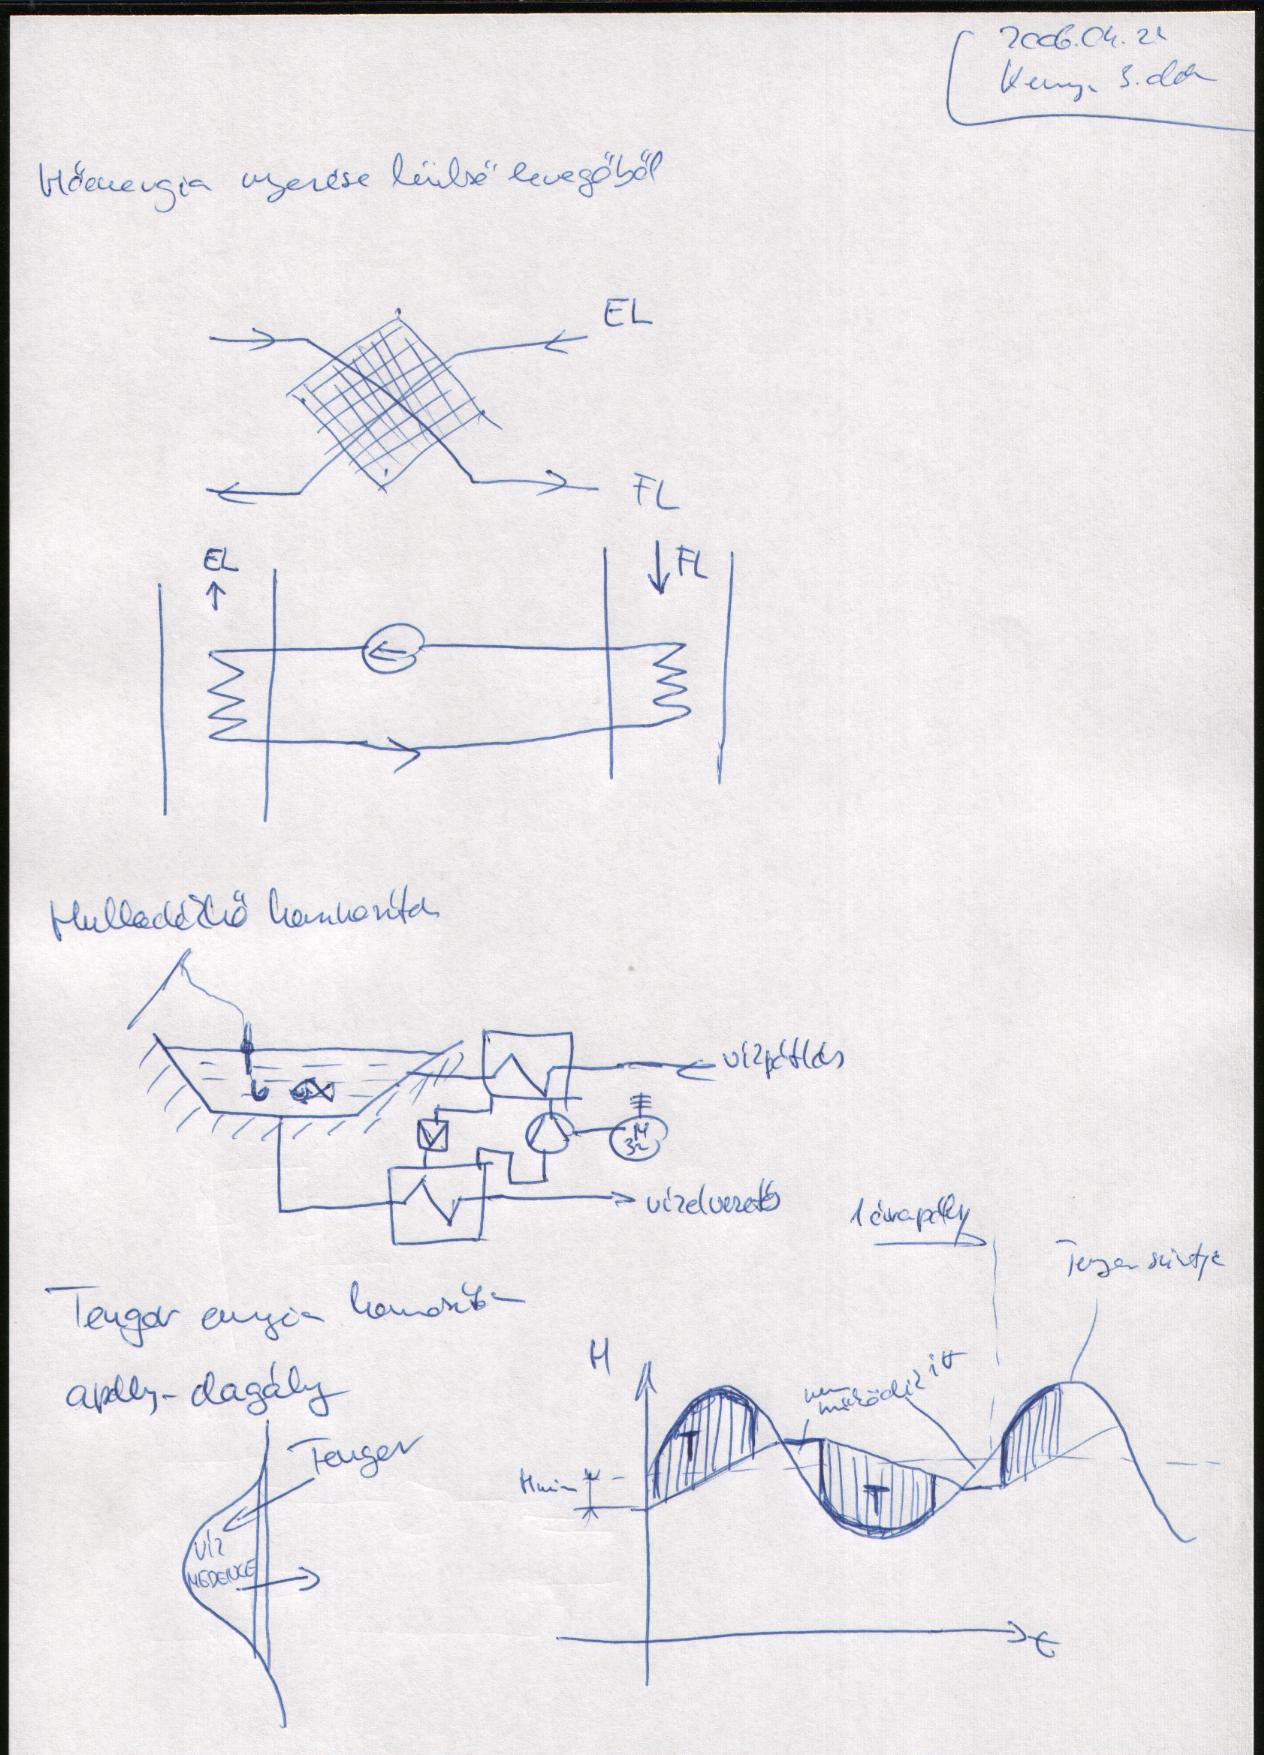 2006.04.21
3.
Hőenergia nyerése külső levegőből
EL
FL
EL
FL
Hulladékhő hasznosítás
vízpótlás
M
3~
vízelvezetés
1 árapály
Tenger szintje
Tenger energia hasznosítás
apály-dagály
H
nem működik itt
Tenger
T
Hmin
T
VÍZ
MEDENCE
t